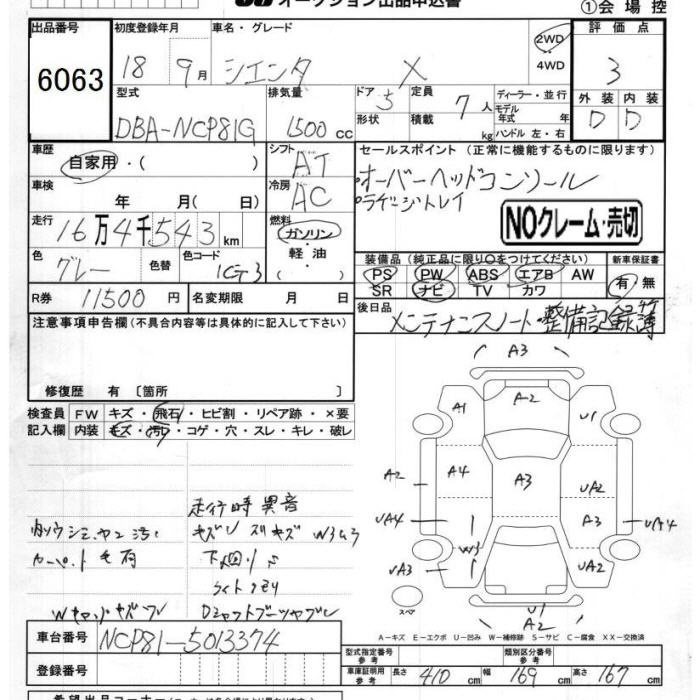 オークション出品申込書 ①会場控
出品番号 初度登録年月 車名・グレード 評価点
6063 18 9月 シエンタ X 2WD 4WD 3
型式 排気量 ドア 5 定員 7人 ディーラー・並行 外装 内装
DBA-NCP81G 1500cc 形状 積載 kg モデル年式 年 ハンドル 左・右 D D
車歴 自家用・( ) シフト AT セールスポイント (正常に機能するものに限ります)
車検 年 月( 日) 冷房 AC ・オーバーヘッドコンソール
・ラゲージトレイ
走行 16万4千543km 燃料 ガソリン・軽油 NOクレーム・売切
色 グレー 色替 色コード 1G3 装備品 (純正品に限り○をつけてください) 新車保証書
PS PW ABS エアB AW 有・無
SR ナビ TV カワ
R券 11500円 名変期限 月 日
後日品 メンテナンスノート・整備記録簿
注意事項申告欄(不具合内容等は具体的に記入して下さい)
修復歴 有 〔箇所 〕
検査員記入欄 FW キズ・飛石・ヒビ割・リペア跡・×要
内装 キズ・汚レ・コゲ・穴・スレ・キレ・破レ
A3
A2
A1 U1
A2 A4 A3 UA2
UA4 A3 UA4
W3
UA3 UA2
スペア U1
A2
走行時異音
キズ
W3
下廻りサビ
ライトクモリ
A-キズ E-エクボ U-凹み W-補修跡 S-サビ C-腐食 XX-交換済
車台番号 NCP81-5013374
登録番号
型式指定番号 参考 類別区分番号 参考
車庫証明用 参考 長さ 410cm 幅 169cm 高さ 167cm